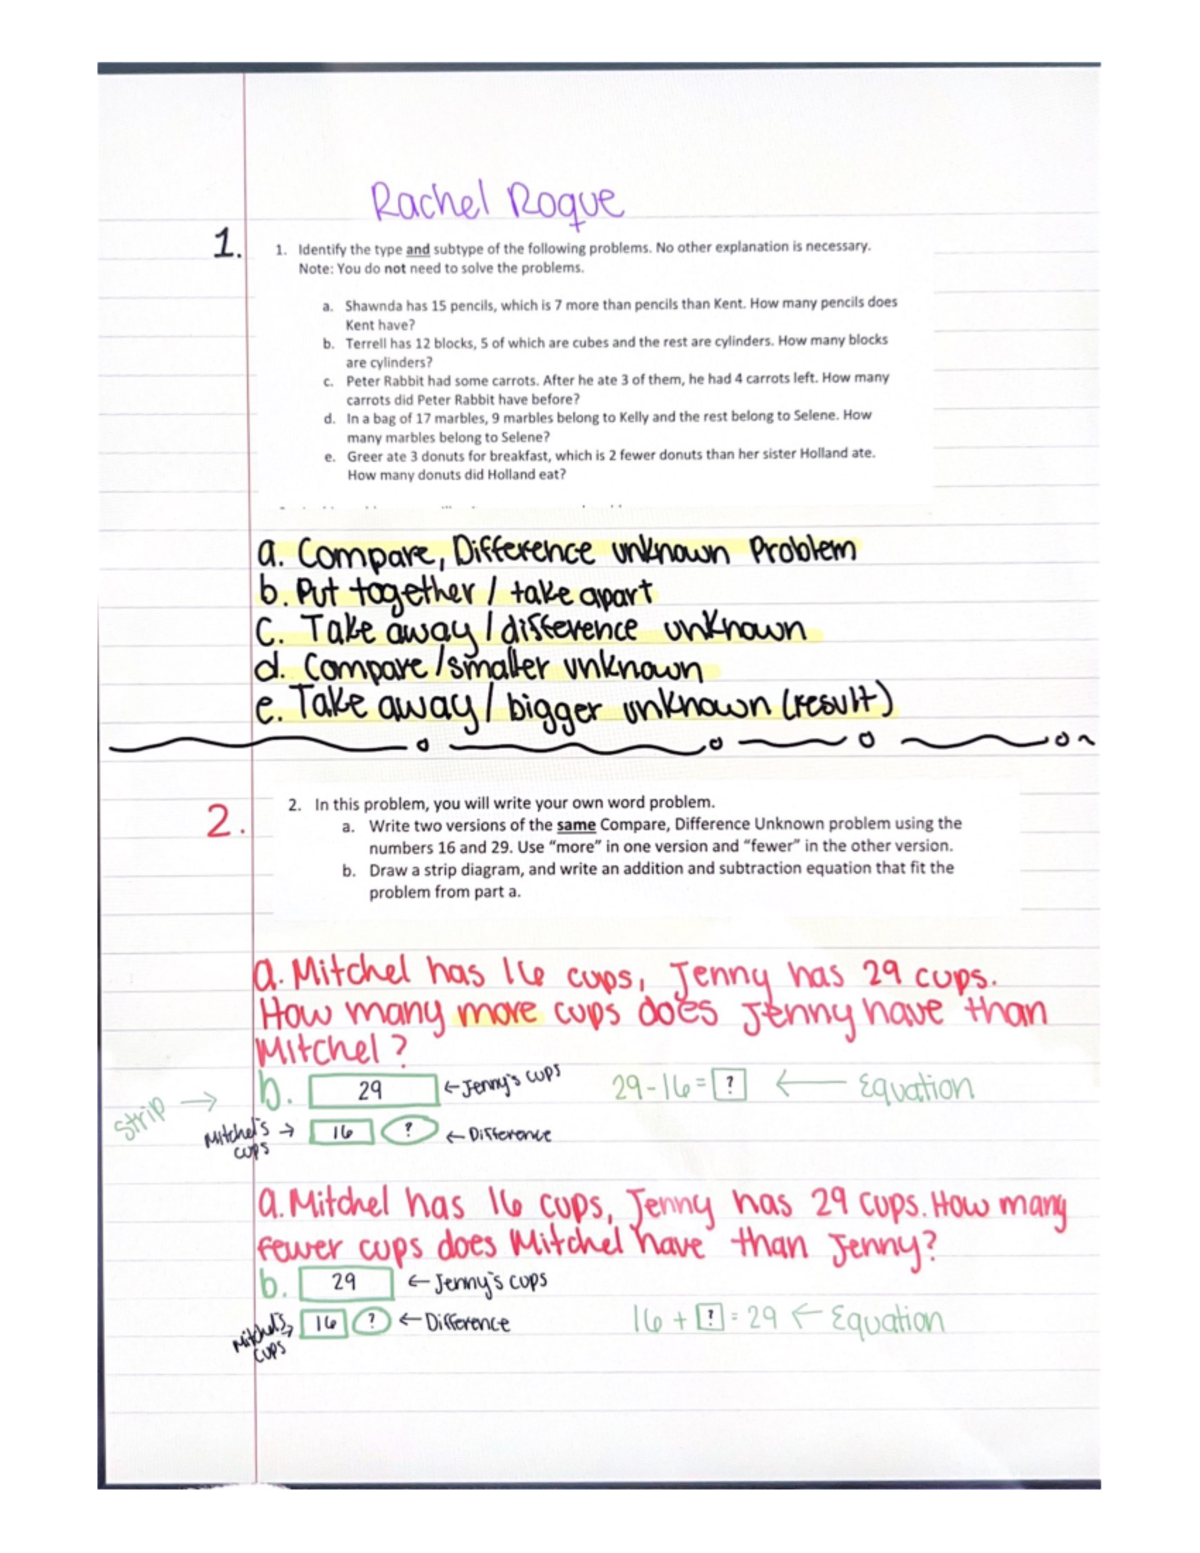 Rachel Roque
1.
1. Identify the type and subtype of the following problems. No other explanation is necessary.
Note: You do not need to solve the problems.
a. Shawnda has 15 pencils, which is 7 more than pencils than Kent. How many pencils does
Kent have?
b. Terrell has 12 blocks, 5 of which are cubes and the rest are cylinders. How many blocks
are cylinders?
c. Peter Rabbit had some carrots. After he ate 3 of them, he had 4 carrots left. How many
carrots did Peter Rabbit have before?
d. In a bag of 17 marbles, 9 marbles belong to Kelly and the rest belong to Selene. How
many marbles belong to Selene?
e. Greer ate 3 donuts for breakfast, which is 2 fewer donuts than her sister Holland ate.
How many donuts did Holland eat?
a. Compare, Difference unknown Problem
b. Put together / take apart
c. Take away / difference unknown
d. Compare / smaller unknown
e. Take away / bigger unknown (result)
2.
2. In this problem, you will write your own word problem.
a. Write two versions of the same Compare, Difference Unknown problem using the
numbers 16 and 29. Use “more” in one version and “fewer” in the other version.
b. Draw a strip diagram, and write an addition and subtraction equation that fit the
problem from part a.
a. Mitchel has 16 cups, Jenny has 29 cups.
How many more cups does Jenny have than
Mitchel?
strip → b. 29 ← Jenny's cups 29-16=? ← Equation
Mitchel's cups → 16 ? ← Difference
a. Mitchel has 16 cups, Jenny has 29 cups. How many
fewer cups does Mitchel have than Jenny?
b. 29 ← Jenny's cups
Mitchel's cups → 16 ? ← Difference 16 + ? = 29 ← Equation